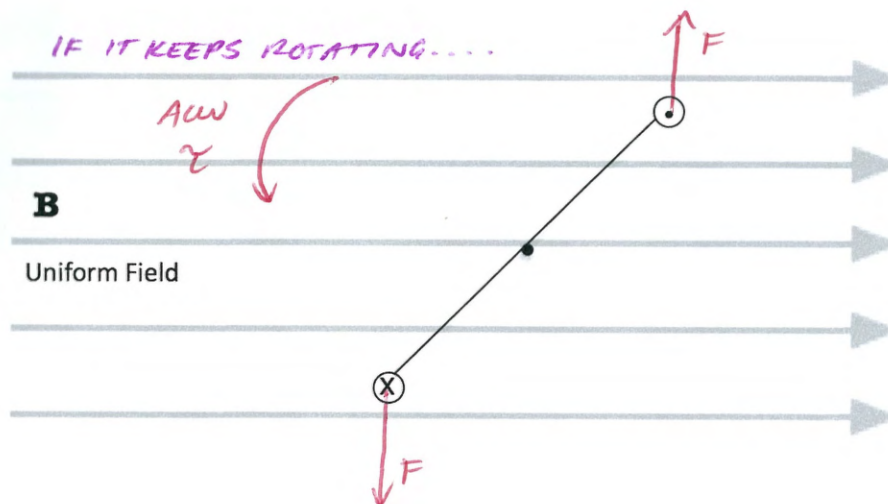 IF IT KEEPS ROTATING....
F
ACW
τ
B
Uniform Field
X
F